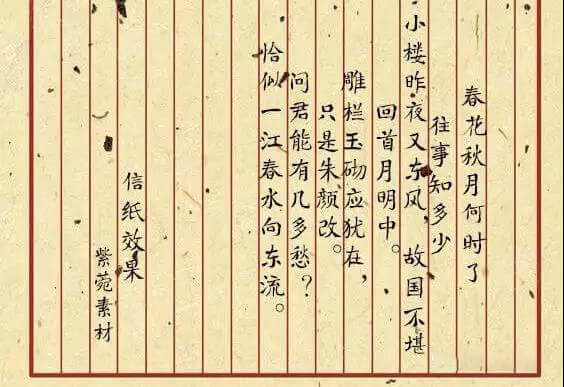 春花秋月何时了
往事知多少
小楼昨夜又东风，故国不堪
回首月明中。
雕栏玉砌应犹在，
只是朱颜改。
问君能有几多愁？
恰似一江春水向东流。
信纸效果
紫菀素材